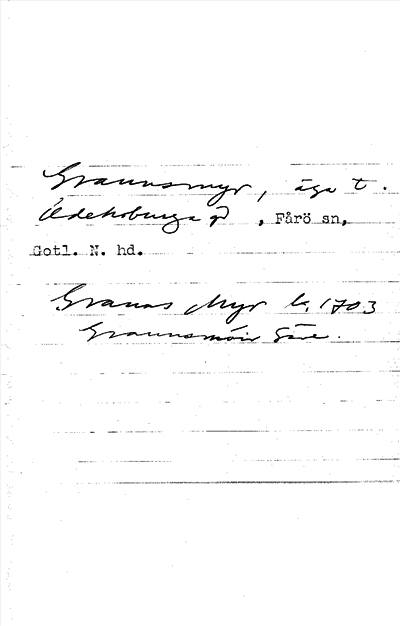 Graunsmyr, äga t.
Ödehoburga gd, Fårö sn,
Gotl. N. hd.
Granas Myr k. 1703
Graunsmöir Säve.